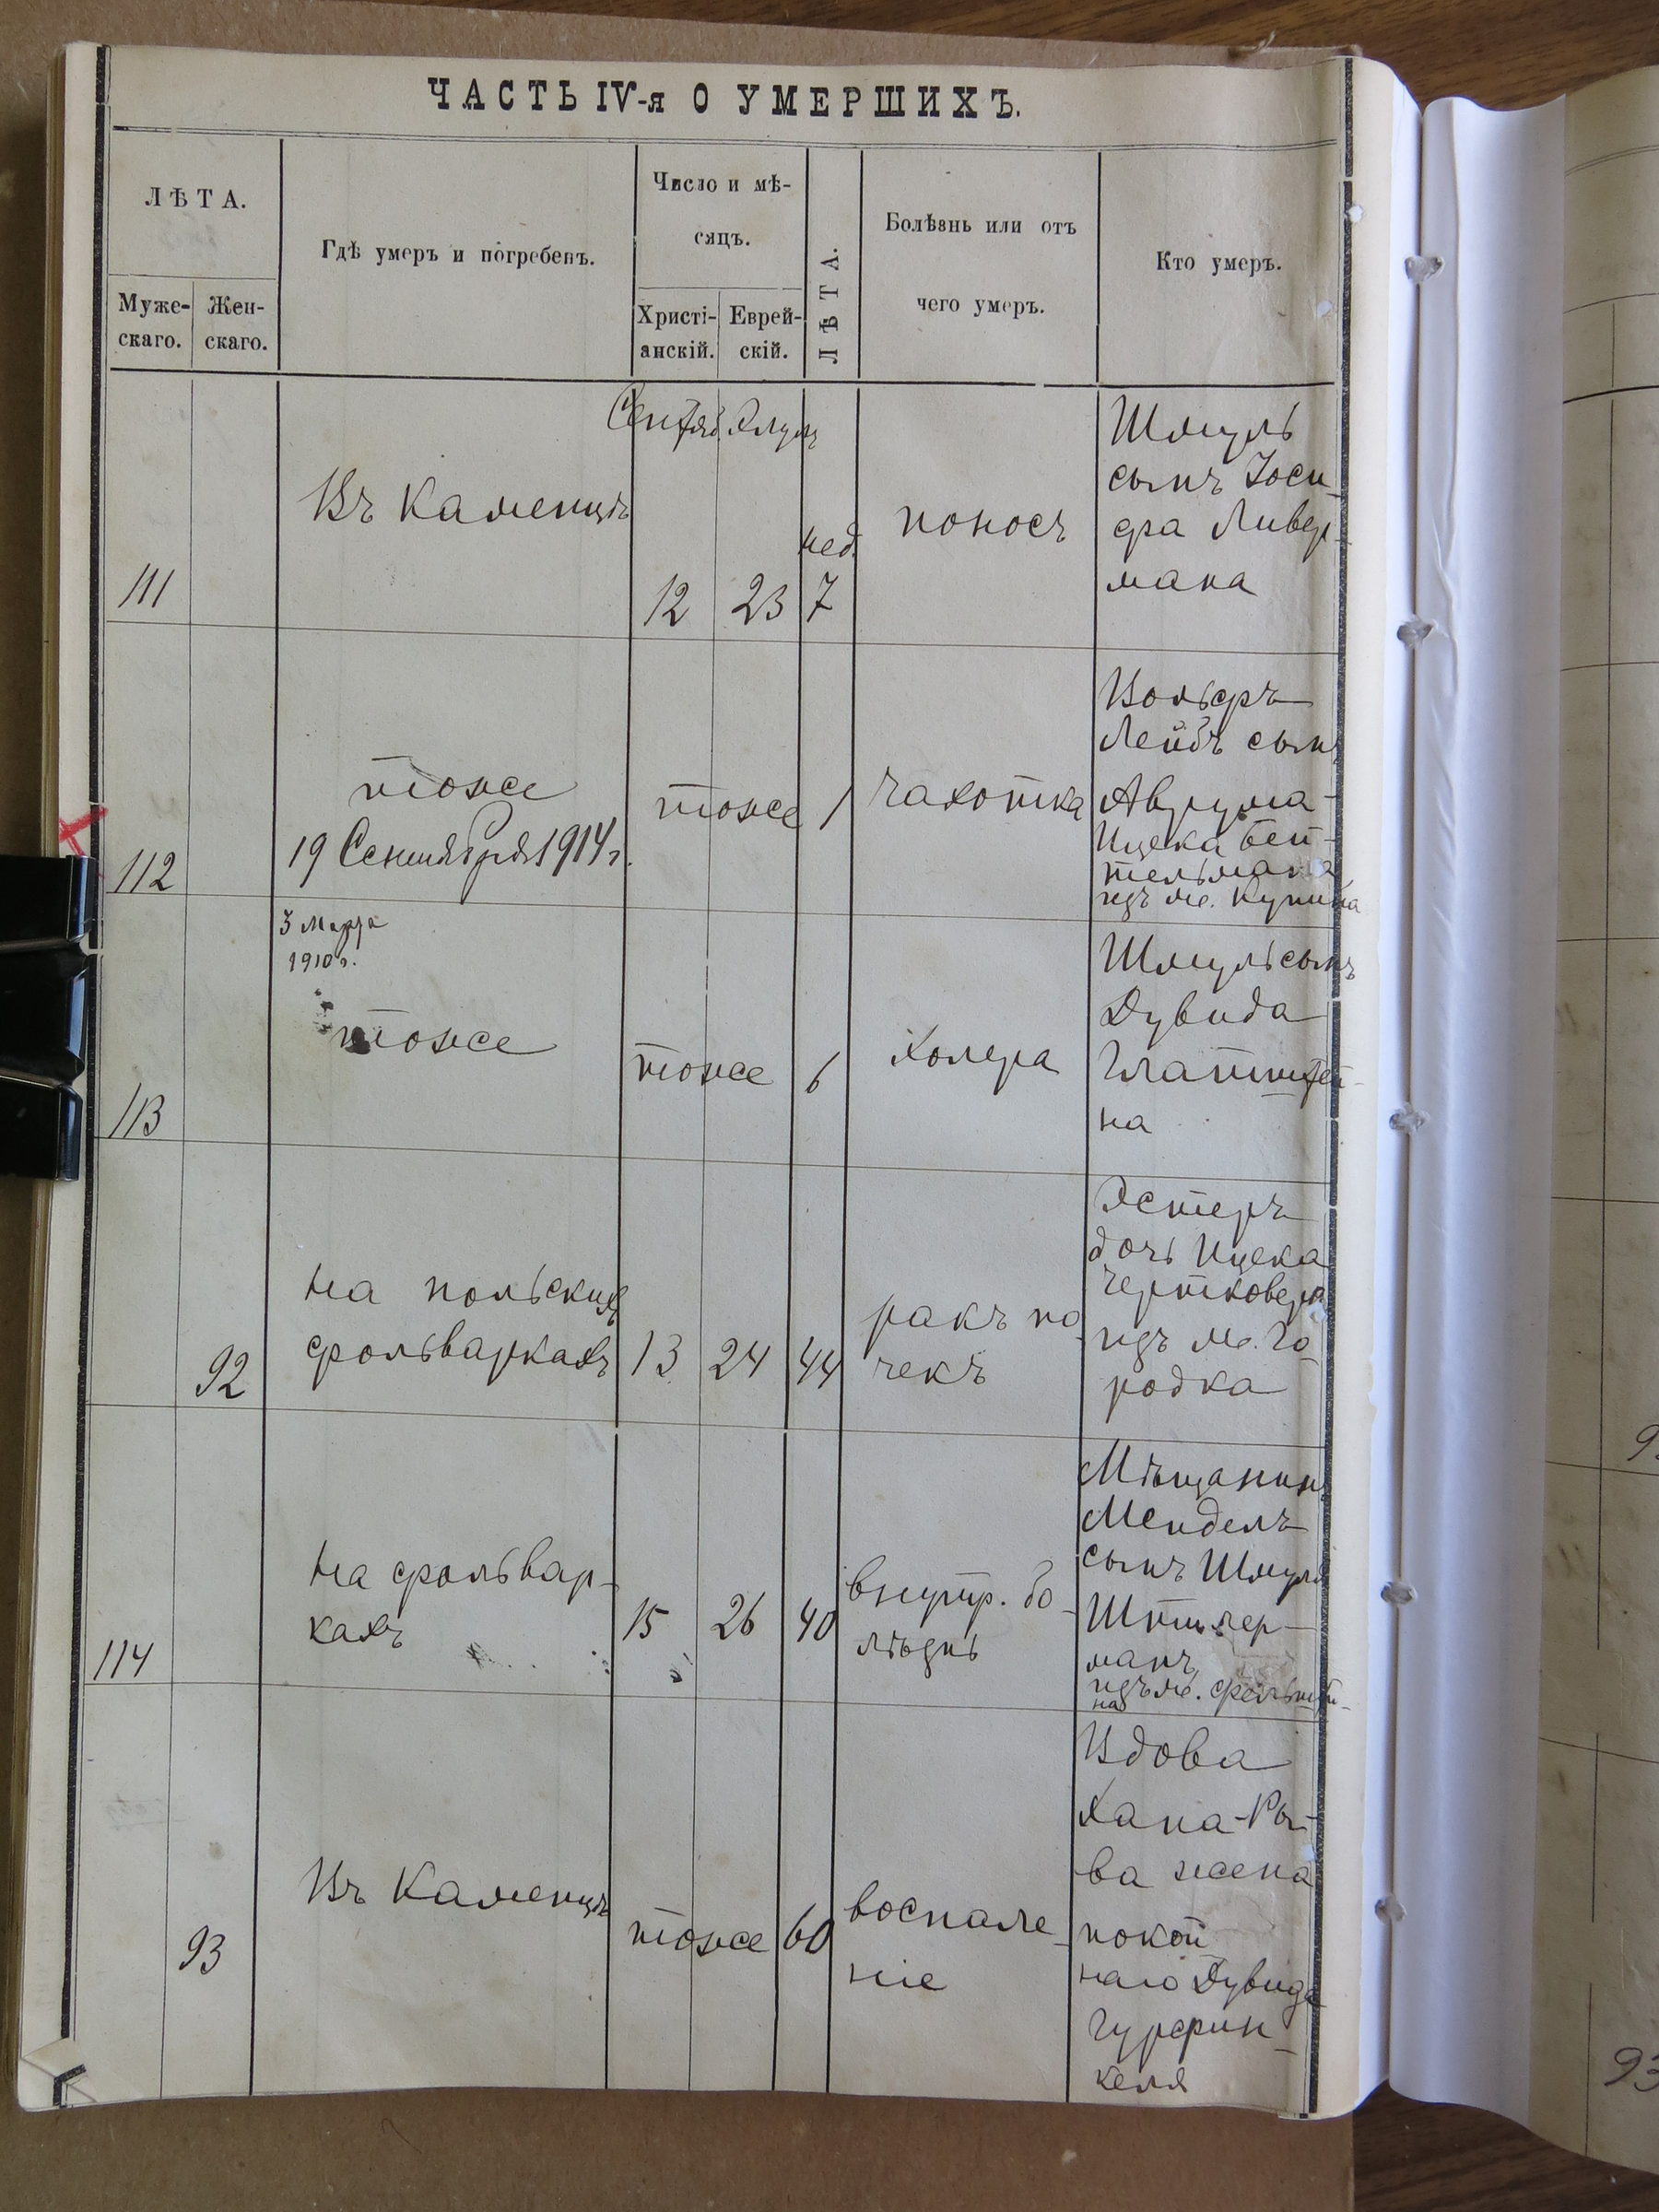 ЧАСТЬ IV-я О УМЕРШИХЪ.
ЛѢТА.
Муже-
скаго.
Жен-
скаго.
Гдѣ умеръ и погребенъ.
Число и мѣ-
сяцъ.
Христі-
анскій.
Еврей-
скій.
ЛѢТА.
Болѣзнь или отъ
чего умеръ.
Кто умеръ.
111
Въ Каменцѣ
Сентяб. Элулъ
12
23
нед.
7
поносъ
Шмуль
сынъ Іоси-
фа Ливер-
мана
112
тоже
19 Сентября 1914 г.
тоже
1
чахотка
Вольфъ
Лейбъ сынъ
Аврума-
Ицека Бей-
тельмана
изъ м. Купина
113
3 Марта
1910 г.
тоже
тоже
6
холера
Шмуль сынъ
Дувида
Глатштей-
на
92
на польскихъ
фольваркахъ
13
24
44
ракъ по-
чекъ
Эстеръ
дочь Ицека
Чертковера
изъ м. Го-
родка
114
на фольвар-
кахъ
15
26
40
внутр. бо-
лѣзнь
Мѣщанинъ
Мендель
сынъ Шмуля
манъ
изъ м.
на
93
Въ Каменцѣ
тоже
60
воспале-
ніе
Вдова
Хана-Ры-
ва жена
покой
наго Дувида
Гурфин-
келя
93